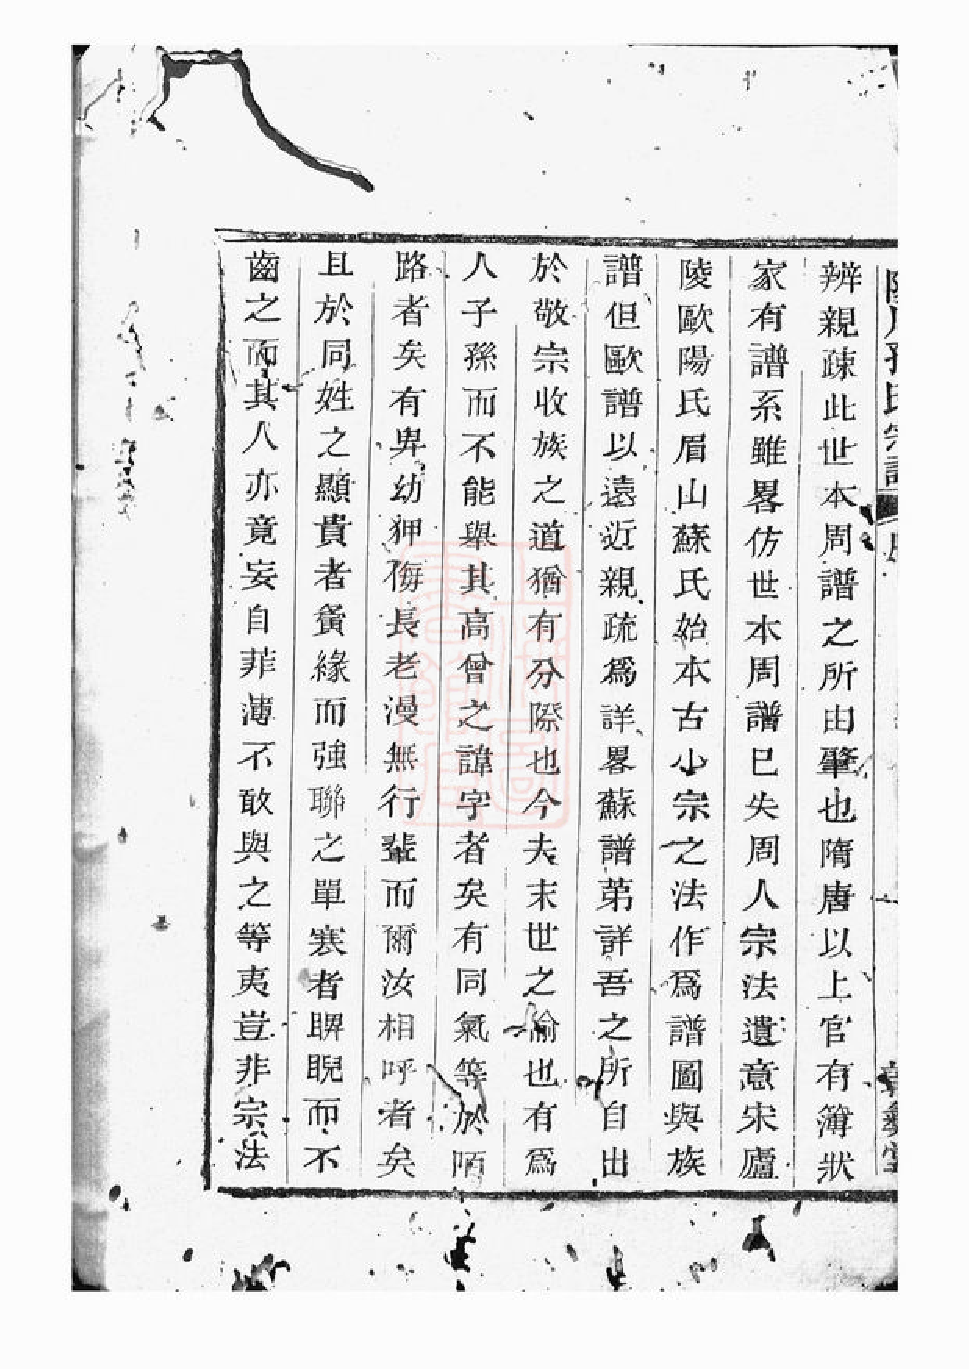 孫氏宗譜 序
辨親疎此世本周譜之所由肇也隋唐以上官有簿狀
家有譜系雖畧仿世本周譜巳失周人宗法遺意宋廬
陵歐陽氏眉山蘇氏始本古小宗之法作爲譜圖與族
譜但歐譜以遠近親疏爲詳畧蘇譜第詳吾之所自出
於敬宗收族之道猶有分際也今夫末世之偷也有爲
人子孫而不能舉其高曾之諱字者矣有同氣等於陌
路者矣有卑幼狎侮長老漫無行輩而爾汝相呼者矣
且於同姓之顯貴者夤緣而強聯之單寒者睥睨而不
齒之而其人亦竟妄自菲薄不敢與之等夷豈非宗法